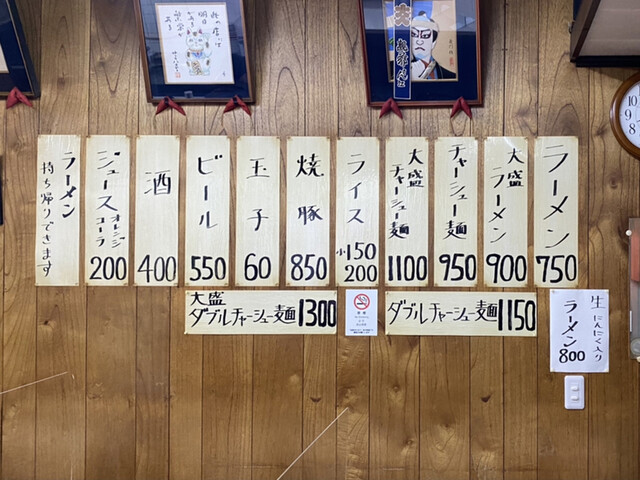 ラーメン
750
大盛
ラーメン
900
チャーシュー麺
950
大盛
チャーシュー麺
1100
ライス
小150
200
焼豚
850
玉子
60
ビール
550
酒
400
ジュース
オレンジ
コーラ
200
ラーメン
持ち帰りできます
大盛
ダブルチャーシュー麺1300
ダブルチャーシュー麺1150
生にんにく入り
ラーメン
800